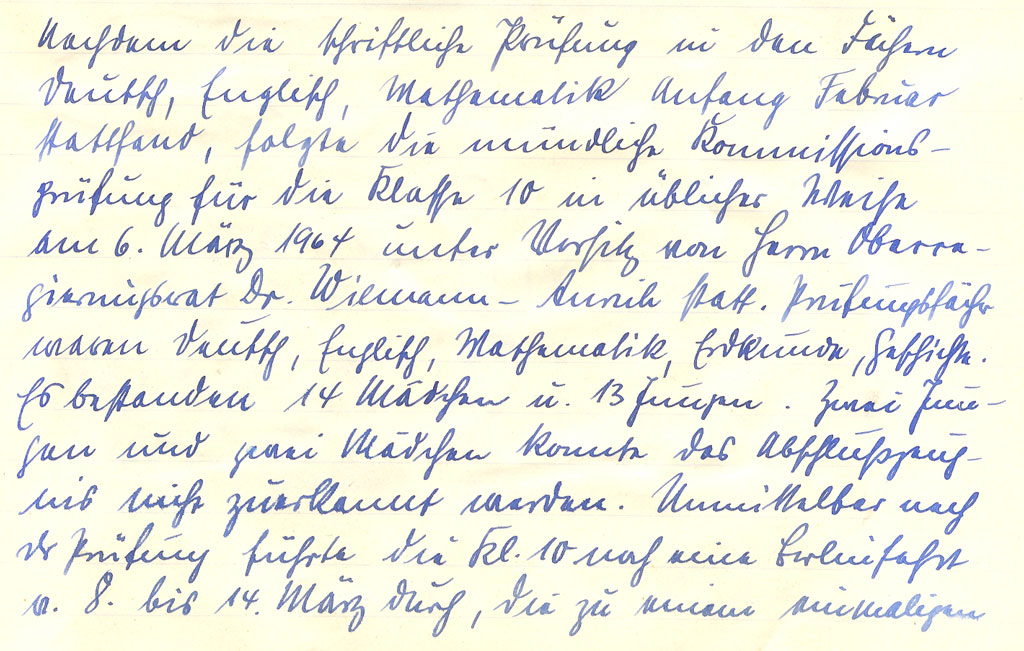 Nachdem die schriftliche Prüfung in den Fächern
Deutsch, Englisch, Mathematik Anfang Februar
stattfand, folgte die mündliche Kommissions-
prüfung für die Klasse 10 in üblicher Weise
am 6. März 1964 unter Vorsitz von Herrn Oberre-
gierungsrat Dr. Wiemann - Aurich statt. Prüfungsfächer
waren Deutsch, Englisch, Mathematik, Erdkunde, Geschichte.
Es bestanden 14 Mädchen u. 13 Jungen. Zwei Jun-
gen und zwei Mädchen konnte das Abschlußzeug-
nis nicht zuerkannt werden. Unmittelbar nach
der Prüfung führte die Kl. 10 noch eine Berlinfahrt
v. 8. bis 14. März durch, die zu einem einmaligen